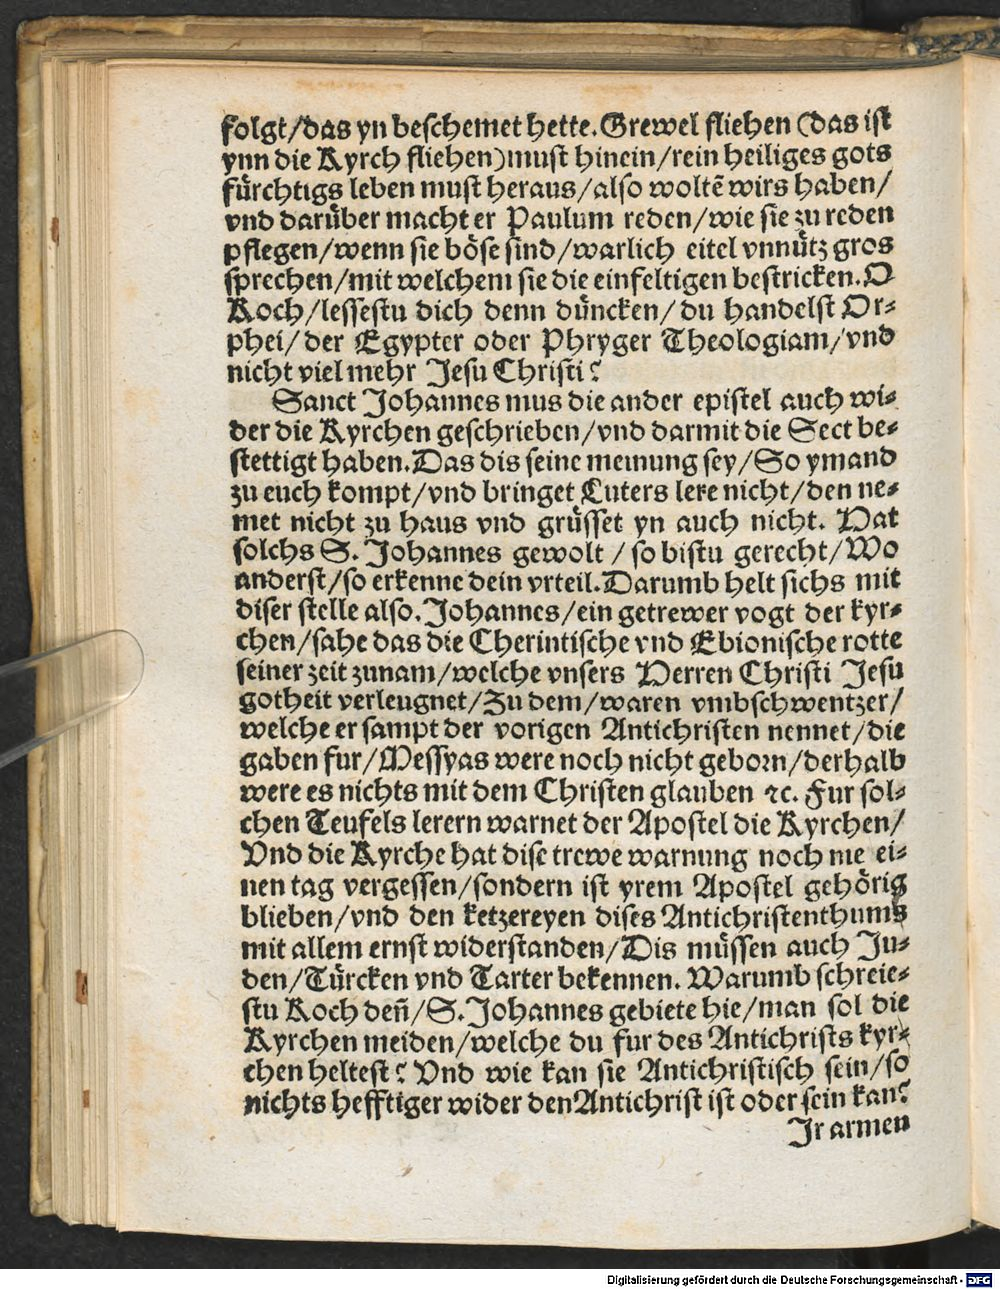 folgt/das yn beschemet hette. Grewel fliehen (das ist
ynn die Kyrch fliehen) must hinein/rein heiliges gots
fürchtigs leben must heraus/also woltē wirs haben/
vnd darüber macht er Paulum reden/wie sie zu reden
pflegen/wenn sie böse sind/warlich eitel vnnütz gros
sprechen/mit welchem sie die einfeltigen bestricken. O
Koch/lessestu dich denn düncken/du handelst Or-
phei/der Egypter oder Phryger Theologiam/vnd
nicht viel mehr Jesu Christi?
Sanct Johannes mus die ander epistel auch wi-
der die Kyrchen geschrieben/vnd darmit die Sect be-
stettigt haben. Das dis seine meinung sey/So ymand
zu euch kompt/vnd bringet Luters lere nicht/den ne-
met nicht zu haus vnd grüsset yn auch nicht. Hat
solchs S. Johannes gewolt/so bistu gerecht/Wo
anderst/so erkenne dein vrteil. Darumb helt sichs mit
diser stelle also. Johannes/ein getrewer vogt der kyr-
chen/sahe das die Cherintische vnd Ebionische rotte
seiner zeit zunam/welche vnsers Herren Christi Jesu
gotheit verleugnet/Zu dem/waren vmbschwentzer/
welche er sampt der vorigen Antichristen nennet/die
gaben fur/Messyas were noch nicht geborn/derhalb
were es nichts mit dem Christen glauben ꝛc. Fur sol-
chen Teufels lerern warnet der Apostel die Kyrchen/
Vnd die Kyrche hat dise trewe warnung noch nie ei-
nen tag vergessen/sondern ist yrem Apostel gehörig
blieben/vnd den ketzereyen dises Antichristenthums
mit allem ernst widerstanden/Dis müssen auch Ju-
den/Türcken vnd Tarter bekennen. Warumb schreie-
stu Koch deñ/S. Johannes gebiete hie/man sol die
Kyrchen meiden/welche du fur des Antichrists kyr-
chen heltest? Vnd wie kan sie Antichristisch sein/so
nichts hefftiger wider den Antichrist ist oder sein kan?
Jr armen
Digitalisierung gefördert durch die Deutsche Forschungsgemeinschaft - DFG